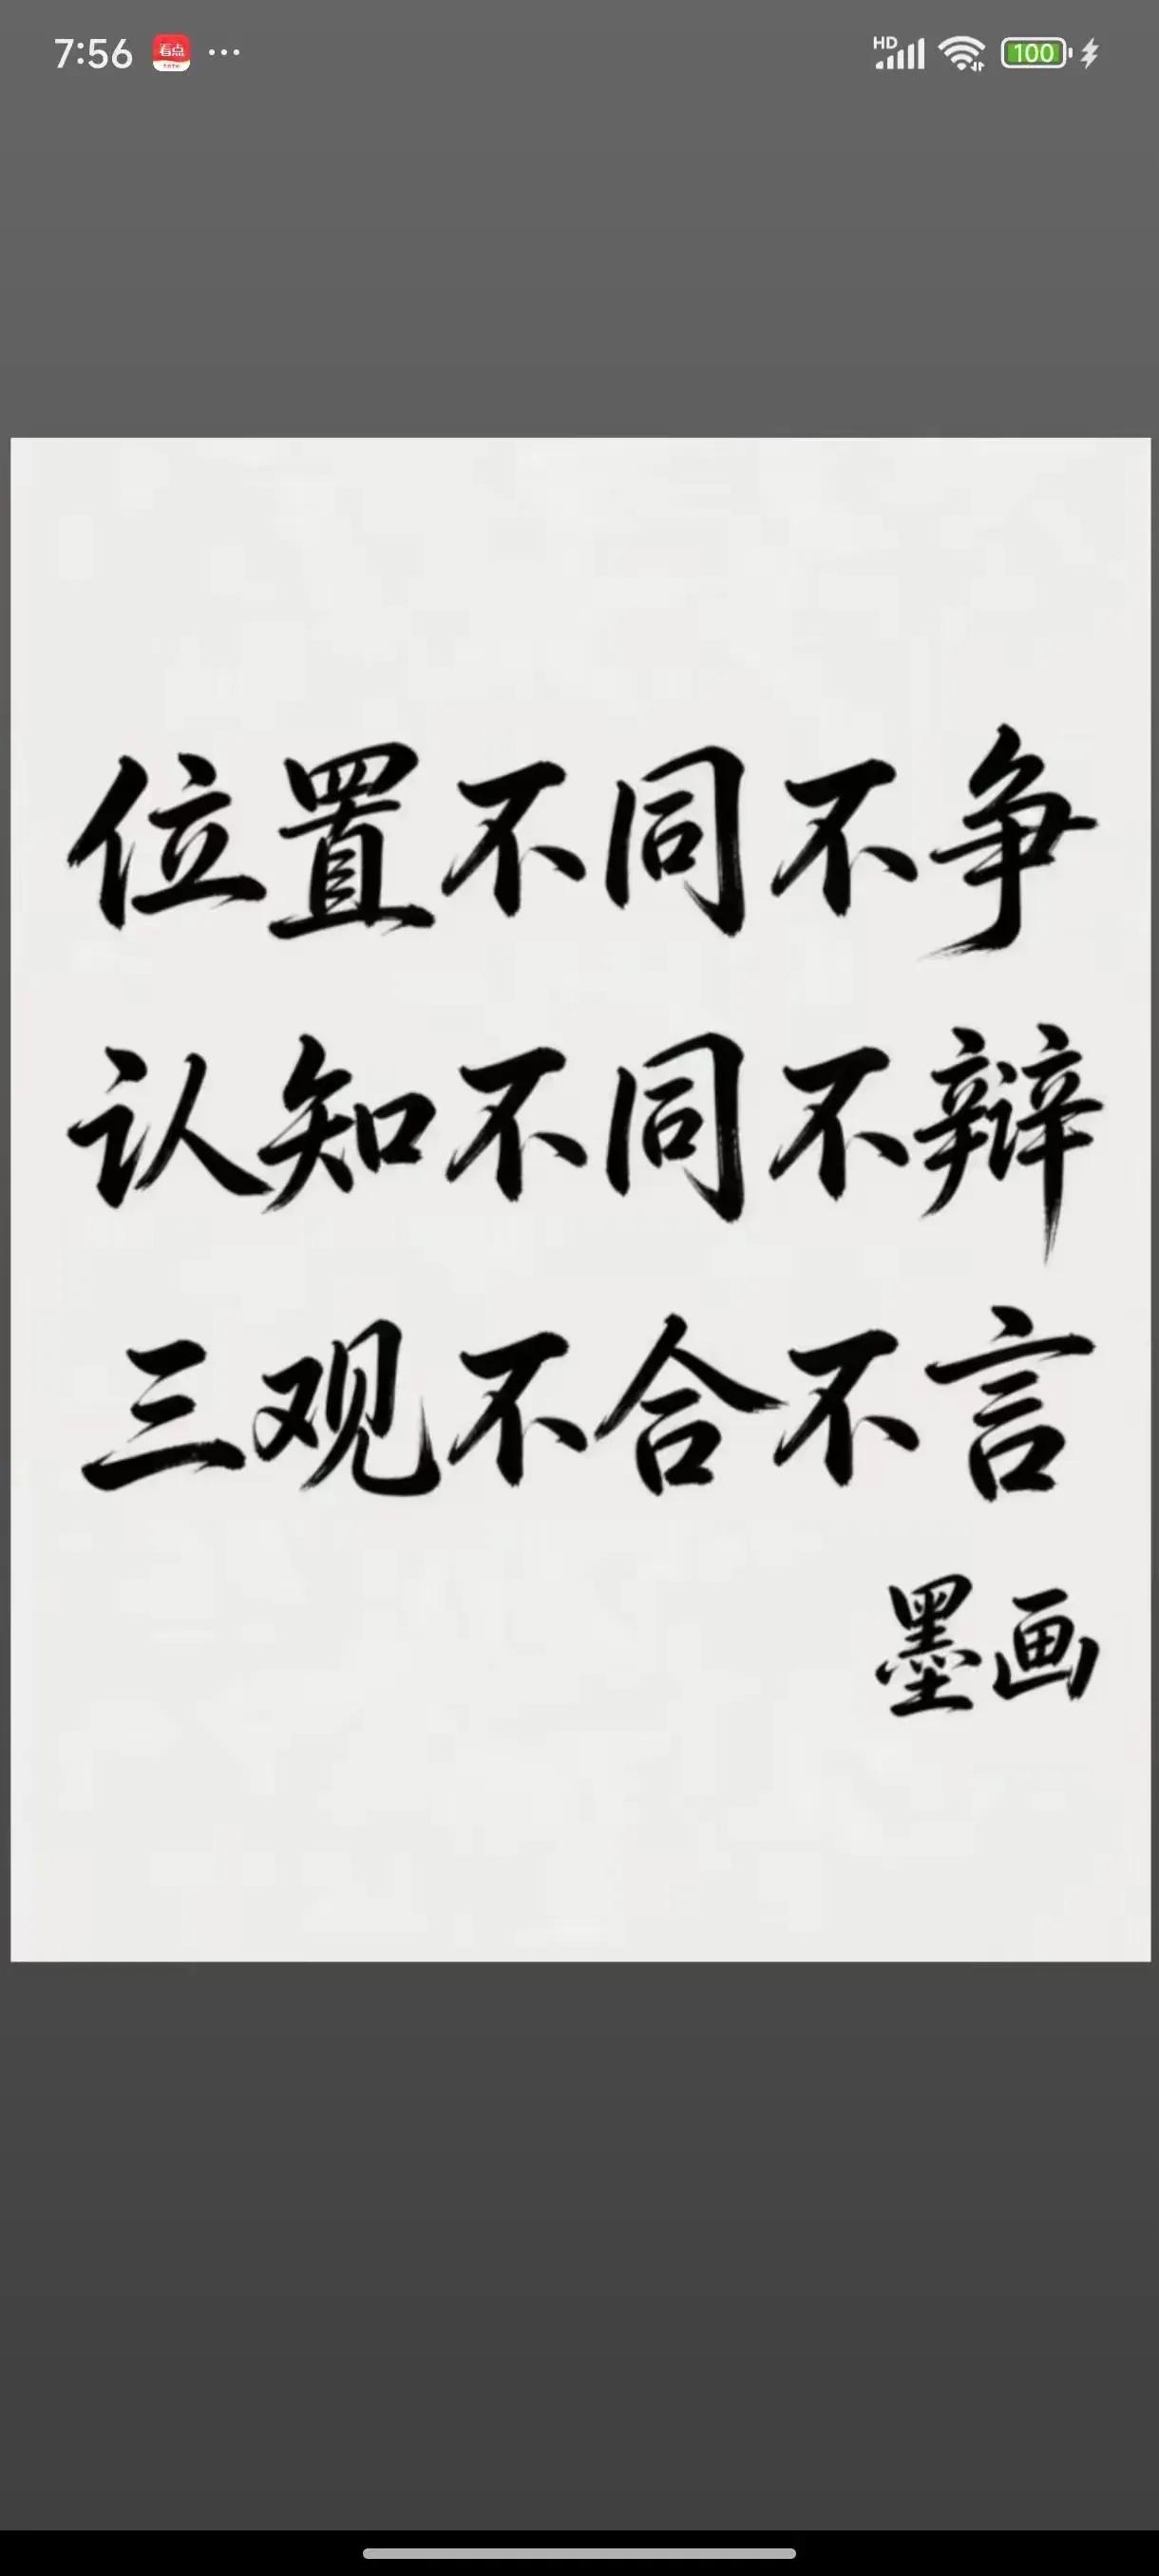 7:56 看点 ... HD 100
位置不同不争
认知不同不辩
三观不合不言
墨画